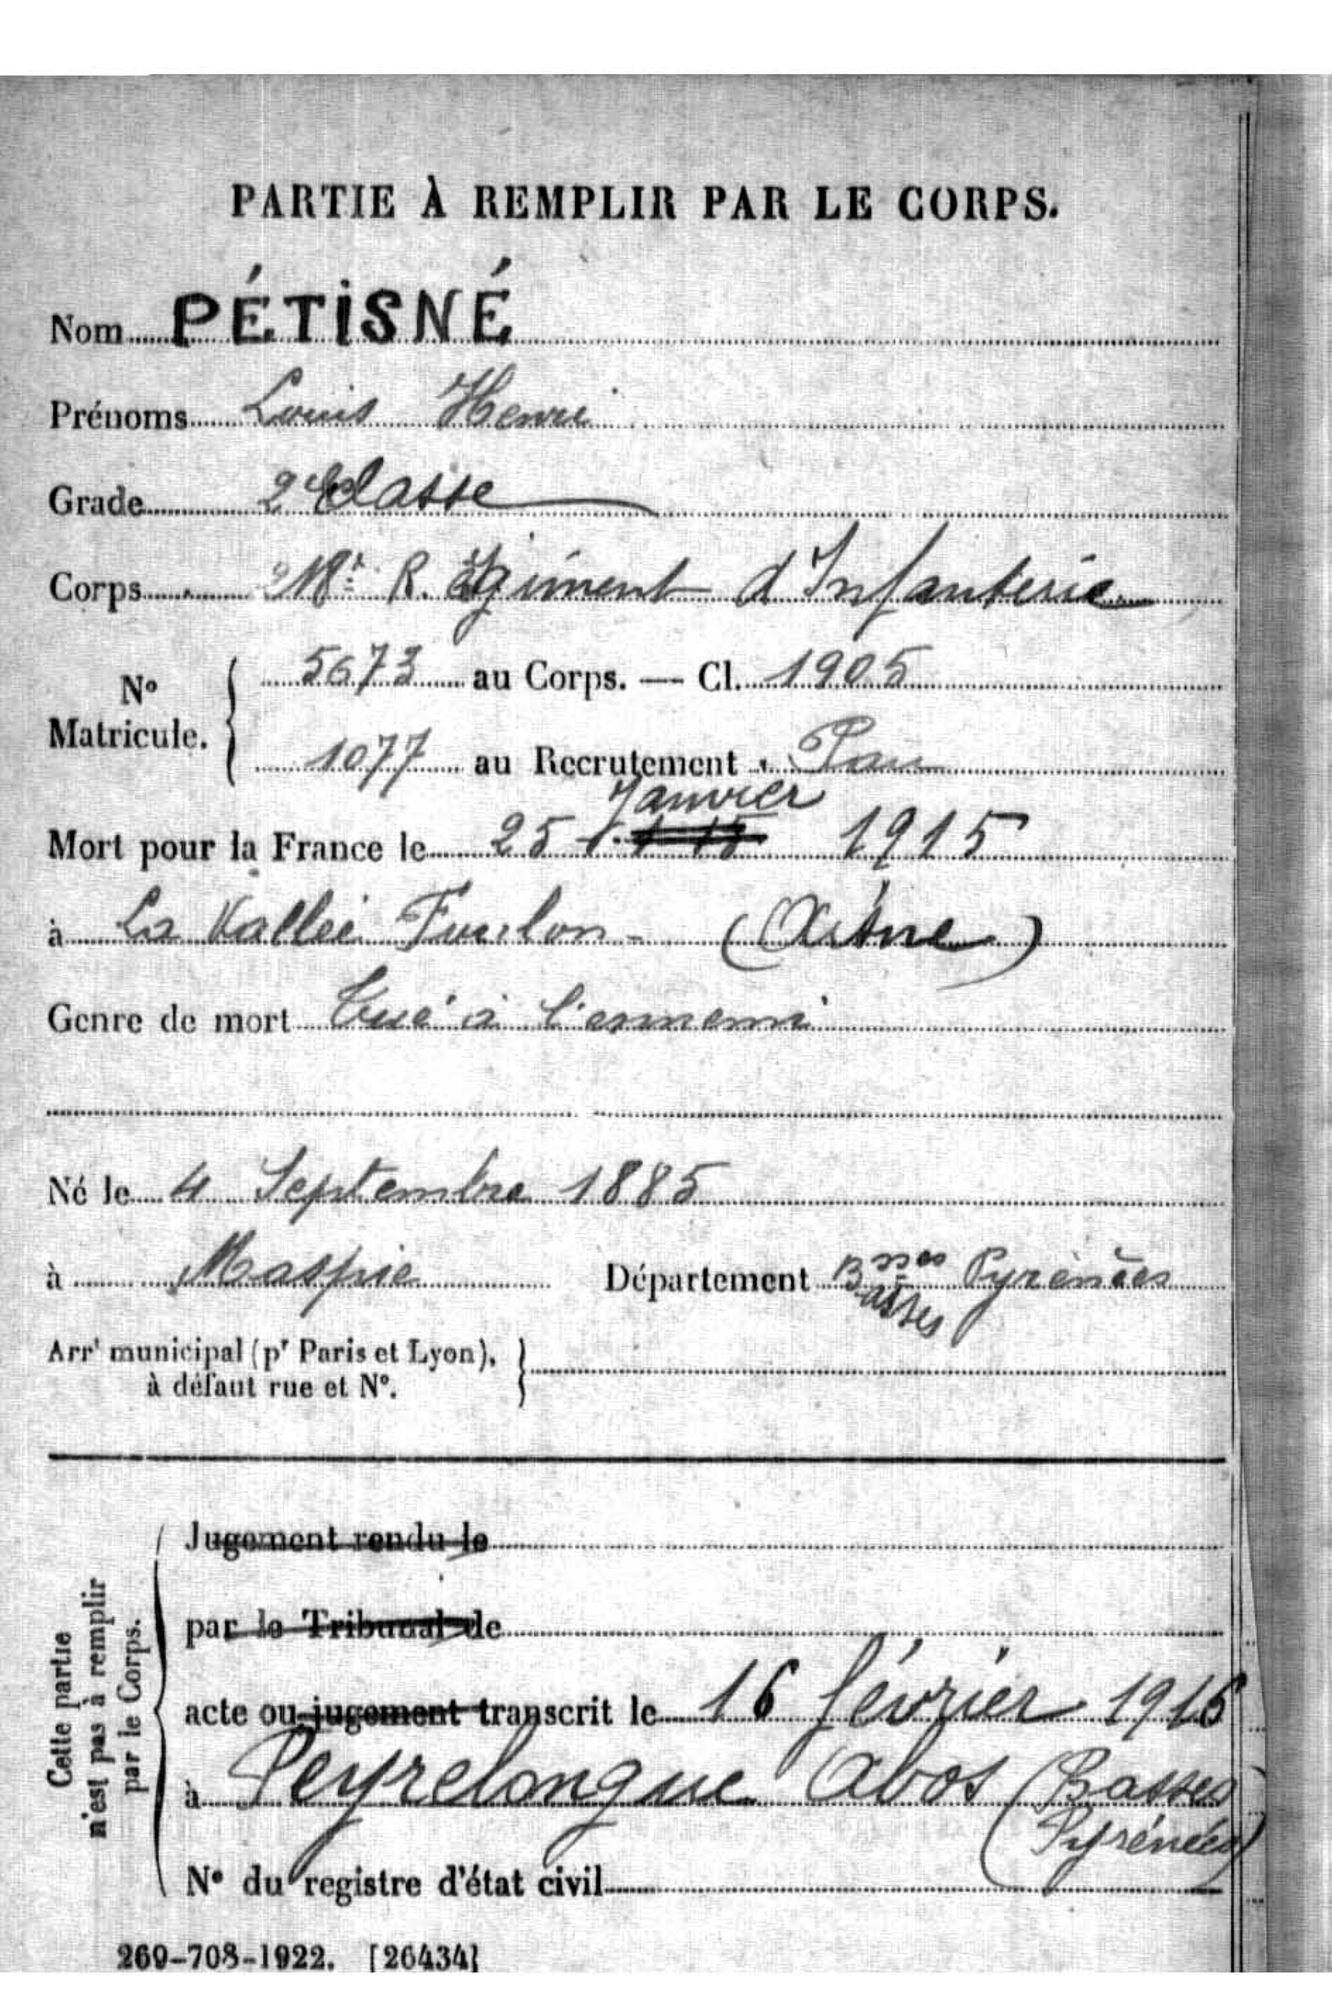 PARTIE À REMPLIR PAR LE CORPS.
Nom PÉTISNÉ
Prénoms Louis Henri
Grade 2e Classe
Corps 218e R. égiment d'Infanterie
No Matricule. 5673 au Corps. — Cl. 1905
1077 au Recrutement Pau
Janvier
Mort pour la France le 25 1915
à La Vallée Foulon - (Aisne)
Genre de mort Tué à l'ennemi
Né le 4 Septembre 1885
à Maspie Département Bsses Pyrénées
Basses
Arrt municipal (pr Paris et Lyon),
à défaut rue et N°.
Cette partie
n'est pas à remplir
par le Corps.
Jugement rendu le
par le Tribunal de
acte ou jugement transcrit le 16 février 1916
à Peyrelongue Abos (Basses
Pyrénées)
N° du registre d'état civil
269-708-1922. [26434]